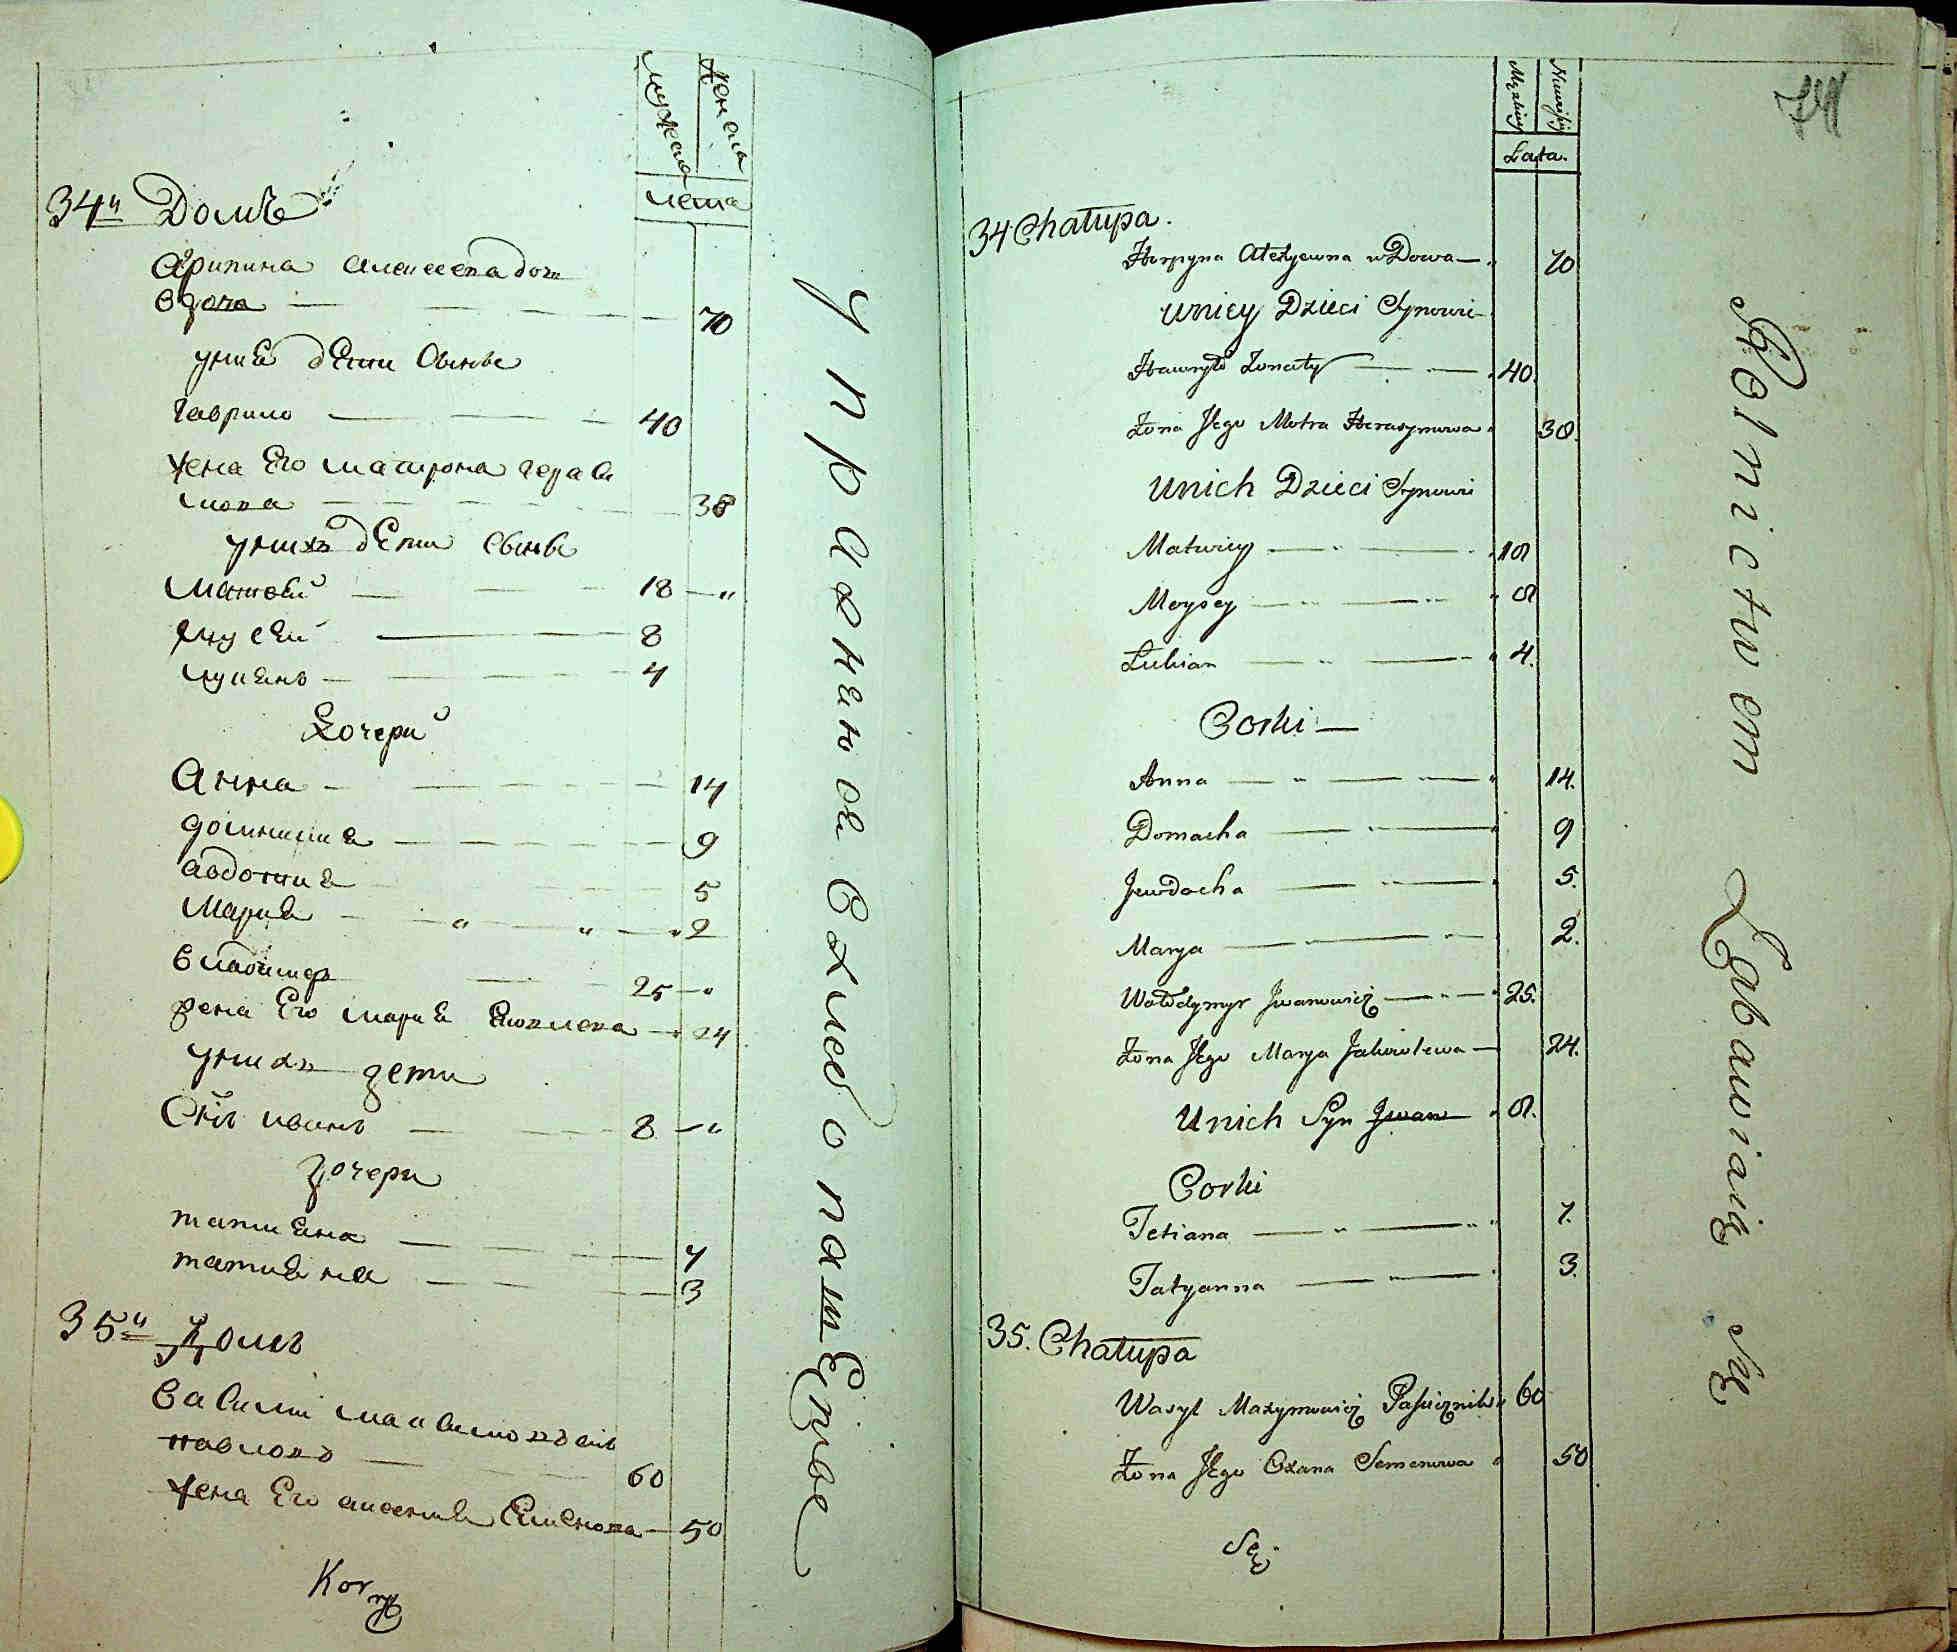 мужеска
женска
лета
34й Домъ
Агрипина Алексеева дочь
вдова — 70
у нея дѣти Сыновья
Гаврило — 40
жена Его Матрона Гераси
мова — 38
у нихъ дѣти Сыновья
Матвей — 18 — "
Мусей — 8
Лукянъ — 4
Дочери
Анна — 14
Домникия — 9
Авдотия — 5
Мария — " — " — " 2
Владимеръ — 25 — "
жена Его Мария Яковлева — 24
у нихъ дети
Снъ Иванъ — 8 — "
Дочери
татияна — 7
татияна — 3
35й Домъ
Василий Максимовъ снъ
павловъ — 60
жена Его Аксения Семенова — 50
Kor
упражняюся в хлебопашестве
Męzkiey
Niewiesciey
Lata.
74
34 Chałupa.
Harpyna Alexyewna wDowa — 70
Uniey Dzieci Synowie
Hawryło Zonaty — 40.
Zona Jego Motra Harasymowa 38.
Unich Dzieci Synowie
Matwiey — 18
Moysey — 8
Łukian — 4.
Corki —
Anna — 14.
Domacha — 9
Jewdocha — 5.
Marya — 2.
Wołodymyr Jwanowicz — 25.
Zona Jego Marya Jakowlewa — 24.
Unich Syn Jwan — 8.
Corki
Tetiana — 7.
Tatyanna — 3.
35. Chałupa
Wasyl Maxymowicz Pasiecznik 60
Zona Jego Oxana Semenowa 50
Rolnictwem Zabawiaią Się